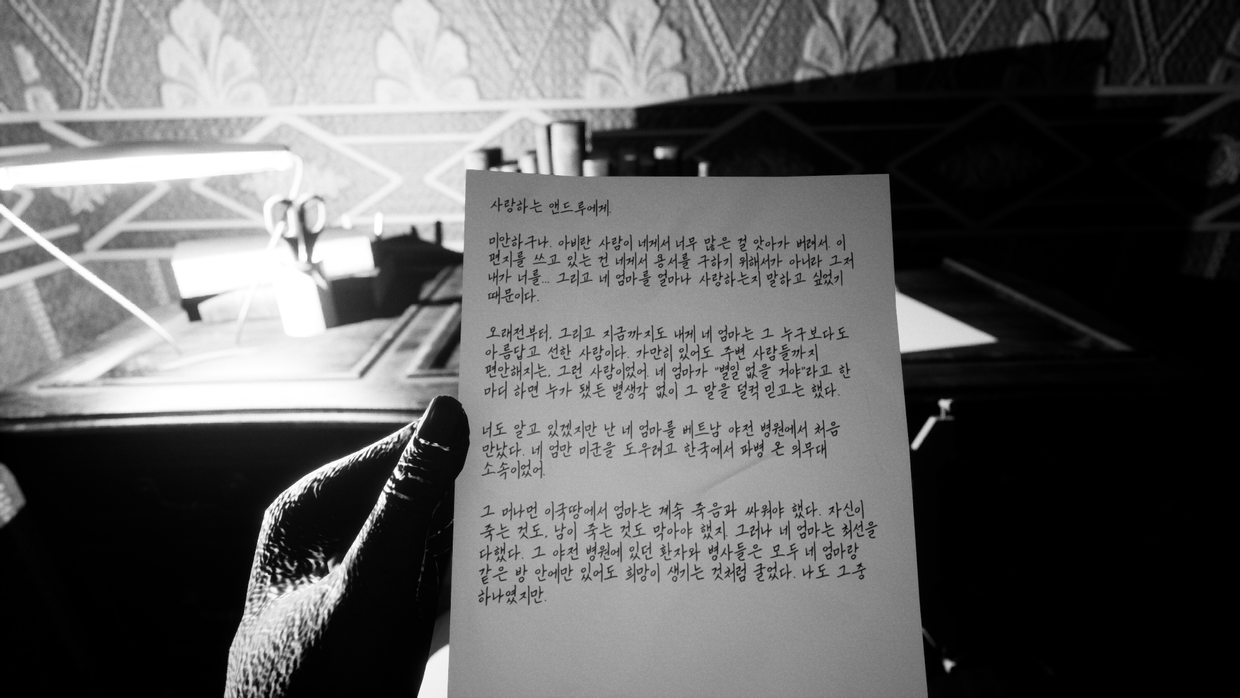 사랑하는 앤드루에게.
미안하구나. 아비란 사람이 네게서 너무 많은 걸 앗아가 버려서. 이
편지를 쓰고 있는 건 네게서 용서를 구하기 위해서가 아니라 그저
내가 너를... 그리고 네 엄마를 얼마나 사랑하는지 말하고 싶었기
때문이다.
오래전부터, 그리고 지금까지도 내게 네 엄마는 그 누구보다도
아름답고 선한 사람이다. 가만히 있어도 주변 사람들까지
편안해지는, 그런 사람이었어. 네 엄마가 "별일 없을 거야"라고 한
마디 하면 누가 됐든 별생각 없이 그 말을 덜컥 믿고는 했다.
너도 알고 있겠지만 난 네 엄마를 베트남 야전 병원에서 처음
만났다. 네 엄만 미군을 도우려고 한국에서 파병 온 의무대
소속이었어.
그 머나먼 이국땅에서 엄마는 계속 죽음과 싸워야 했다. 자신이
죽는 것도, 남이 죽는 것도 막아야 했지. 그러나 네 엄마는 최선을
다했다. 그 야전 병원에 있던 환자와 병사들은 모두 네 엄마랑
같은 방 안에만 있어도 희망이 생기는 것처럼 굴었다. 나도 그중
하나였지만.